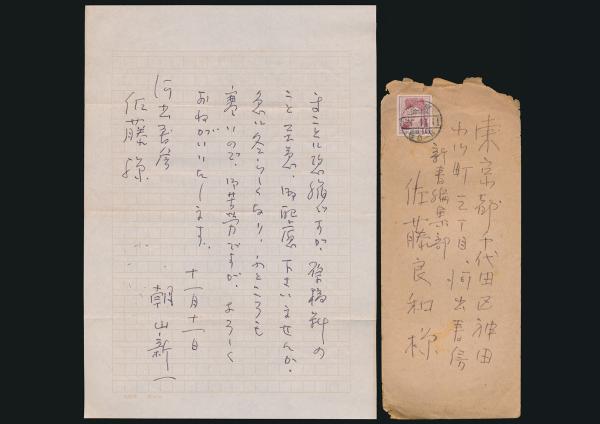 まことに恐縮ですが、原稿料の
こと至急、御配慮下さいませんか。
急に冬らしくなり、ふところも
寒いので、御苦労ですが、よろしく
おねがいいたします。
十一月十一日
朝山新一
河出書房
佐藤様
東京都千代田区神田
小川町三丁目、河出書房
新書編集部
佐藤良和様